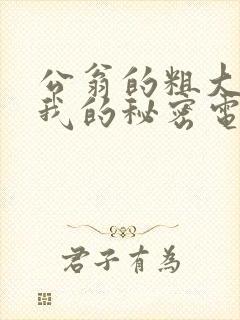 公翁的粗大
我的秘密電
君子有為